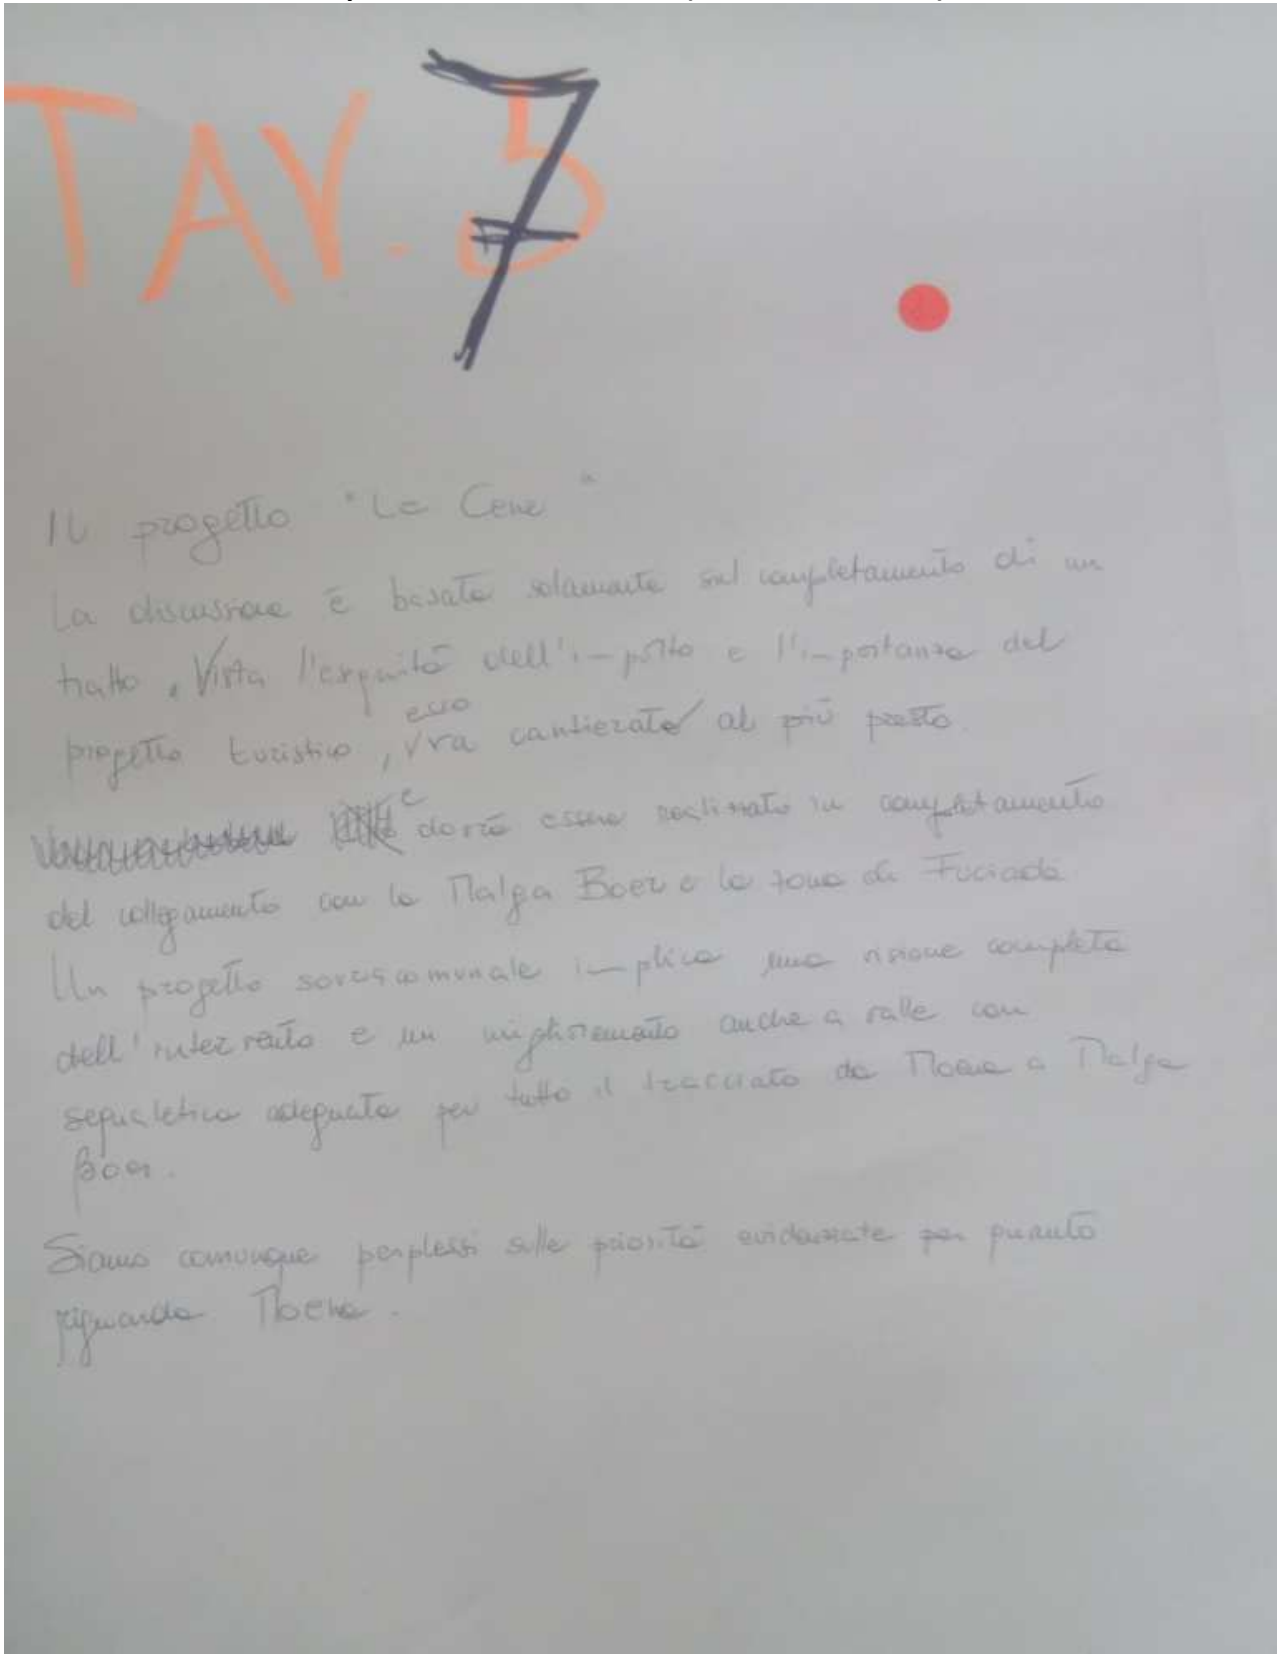 TAV. 7
Il progetto "Le Cene"
La discussione è basata solamente sul completamento di un
tratto. Vista l'esiguità dell'importo e l'importanza del
progetto turistico, esso va cantierato al più presto
e dovrà essere realizzato in completamento
del collegamento con la Malga Boer e la zona di Fuciade.
Un progetto sovracomunale implica una visione completa
dell'intervento e un miglioramento anche a valle con
segnaletica adeguata per tutto il tracciato da Moena a Malga
Boer.
Siamo comunque perplessi sulle priorità evidenziate per quanto
riguarda Moena.